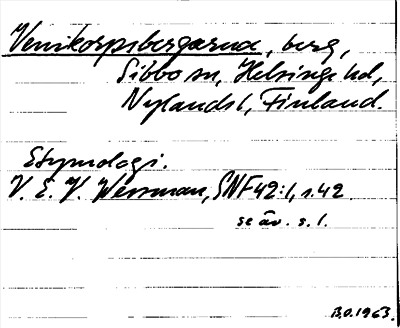 Venikorpsbergarna, berg,
Sibbo sn, Helsinge hd,
Nylands l, Finland.
Etymologi.
V. E. V. Wessman, SNF 42:1, s. 42
se äv. s. 1.
B.O. 1963.